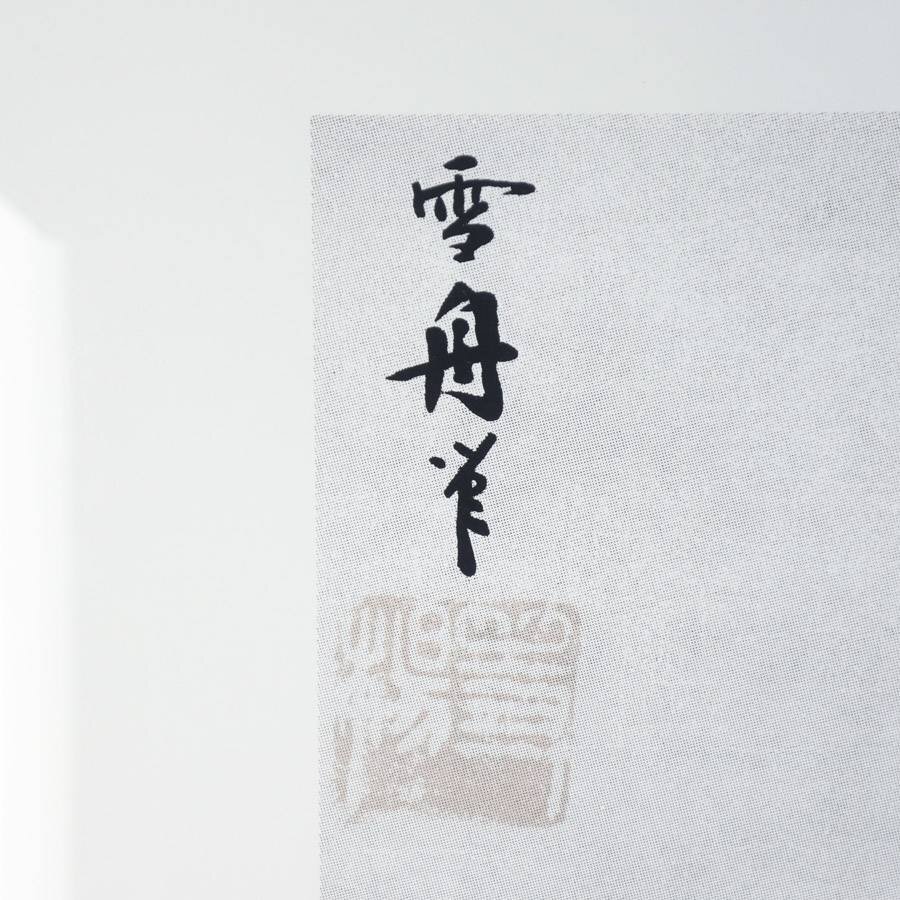 雪舟筆